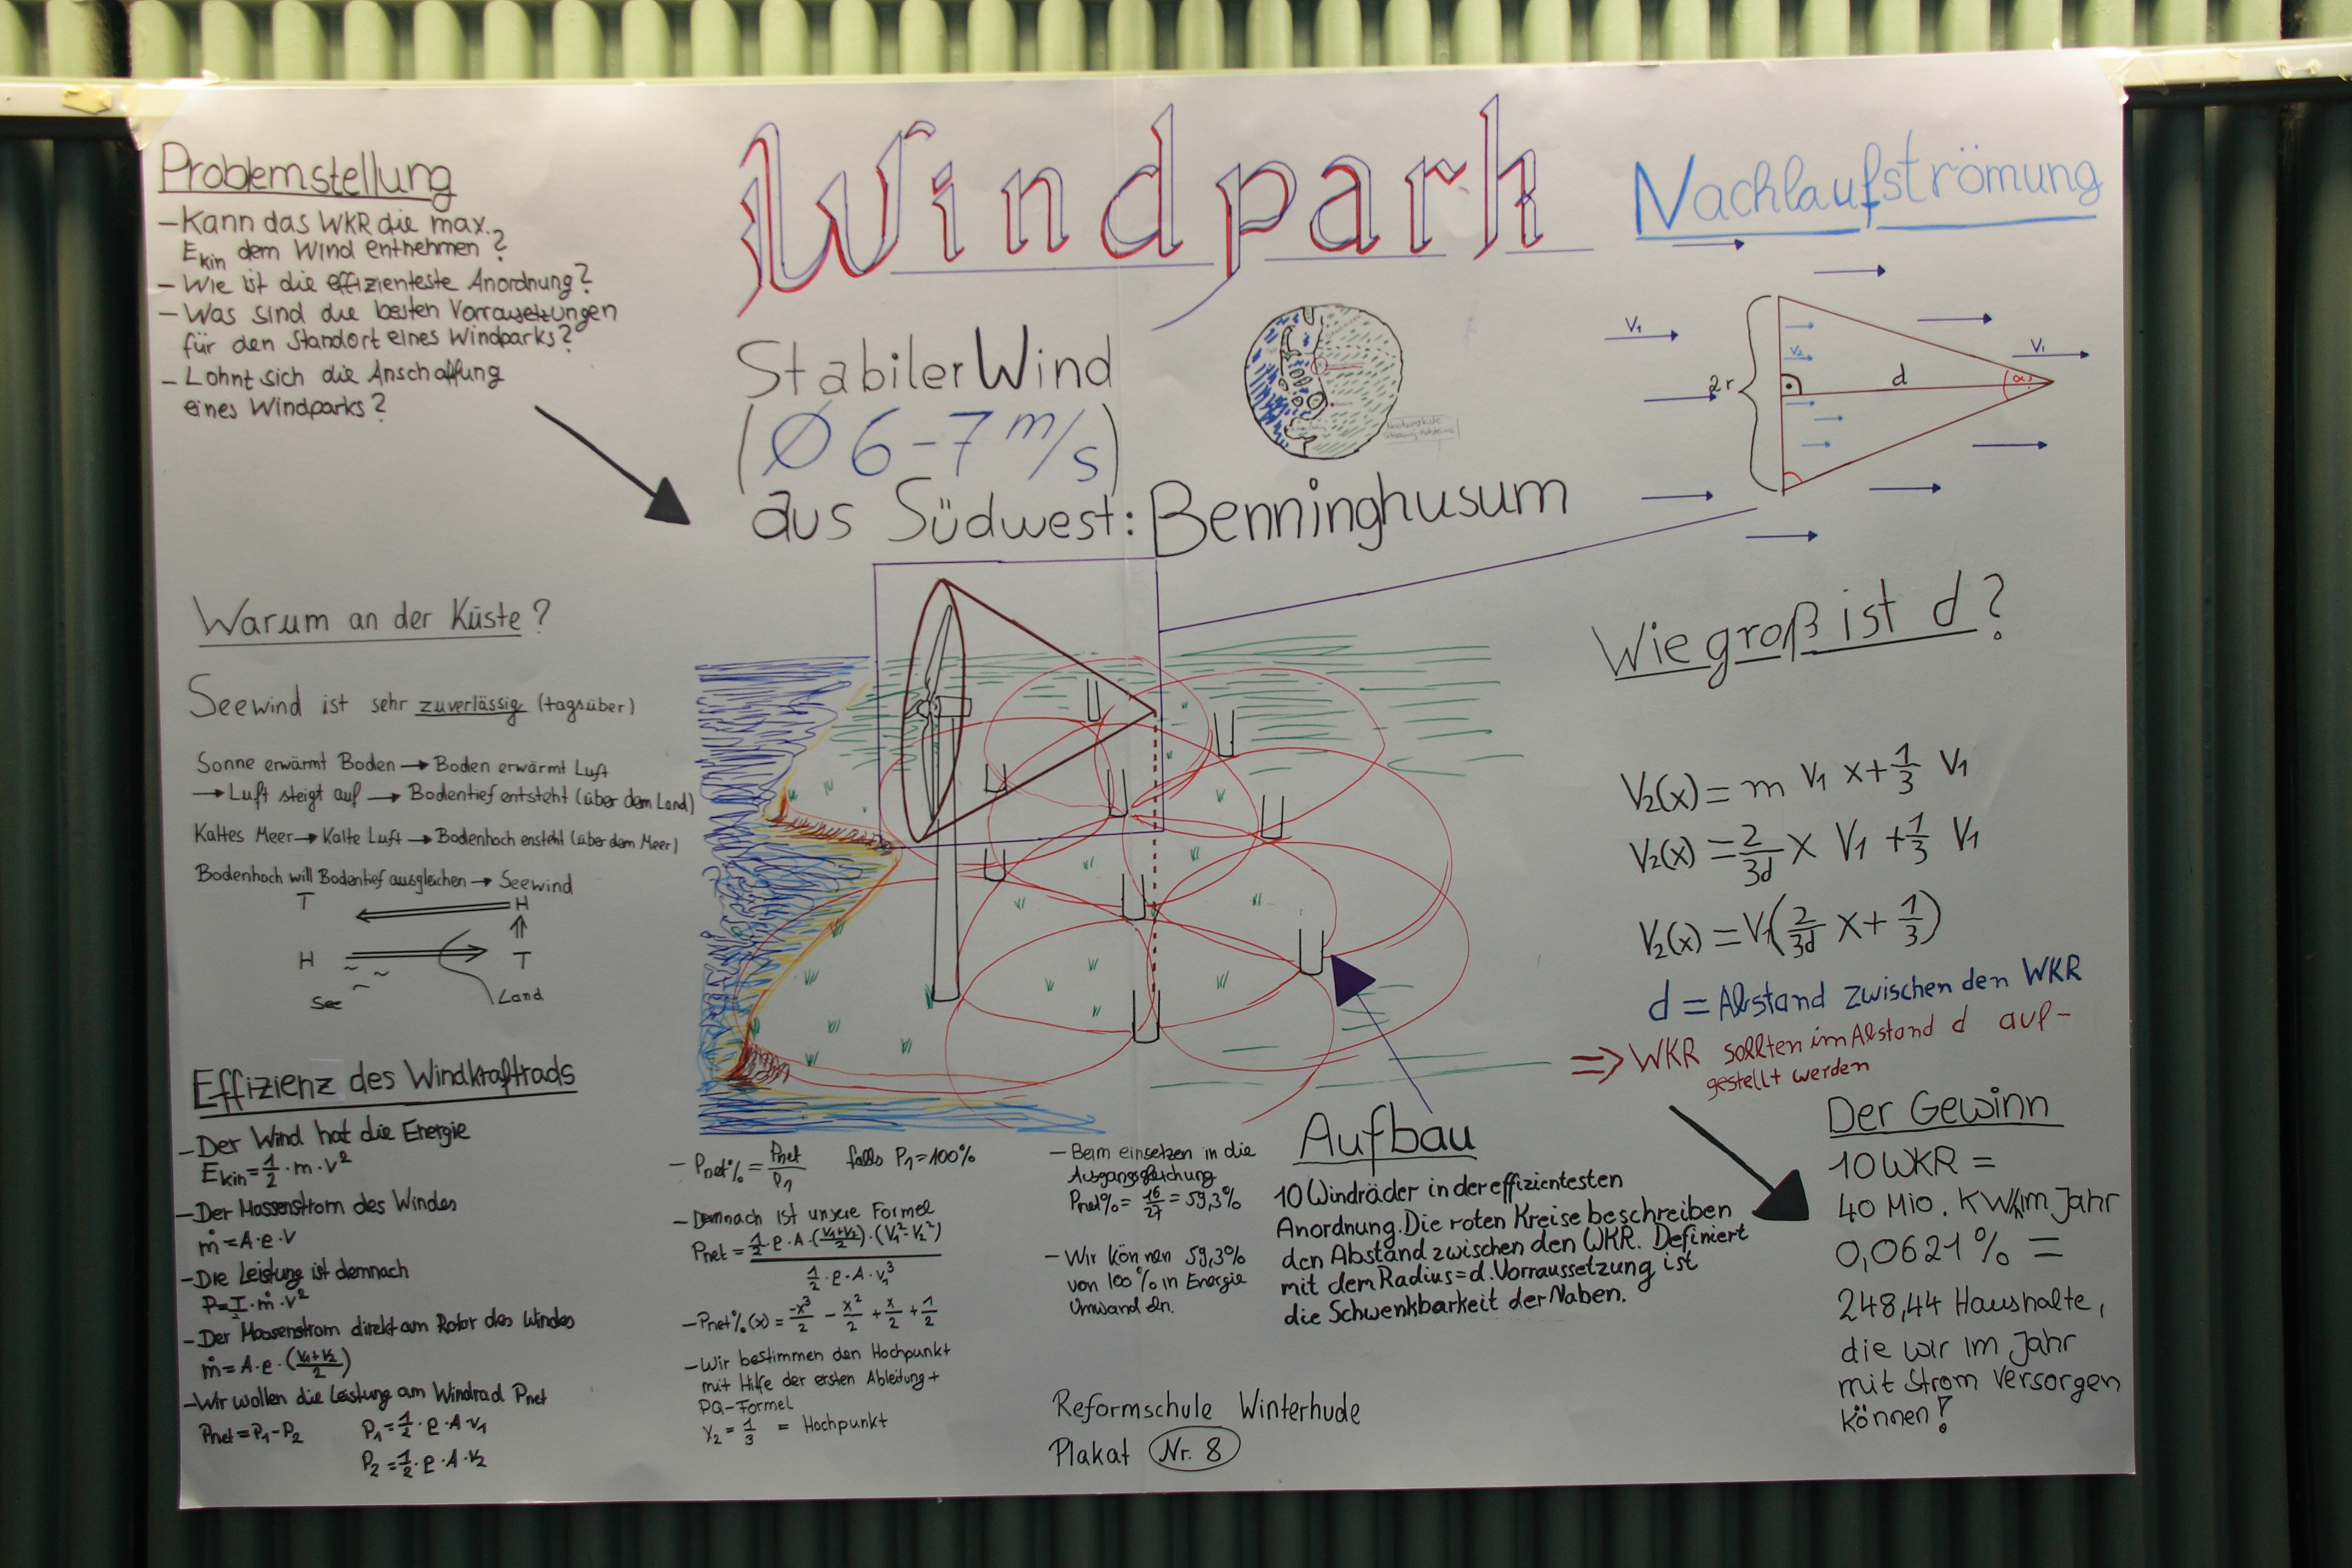 Problemstellung
– Kann das WKR die max.
Ekin dem Wind entnehmen?
– Wie ist die effizienteste Anordnung?
– Was sind die besten Vorrausetzungen
für den Standort eines Windparks?
– Lohnt sich die Anschaffung
eines Windparks?
Windpark
Stabiler Wind
(Ø 6–7 m/s)
aus Südwest: Benninghusum
Nachlaufströmung
V₁
V₂
2r
d
α
V₁
Warum an der Küste?
Seewind ist sehr zuverlässig (tagsüber)
Sonne erwärmt Boden → Boden erwärmt Luft
→ Luft steigt auf → Bodentief entsteht (über dem Land)
Kaltes Meer → Kalte Luft → Bodenhoch ensteht (über dem Meer)
Bodenhoch will Bodentief ausgleichen → Seewind
T H
H T
See Land
Wie groß ist d?
V₂(x) = m V₁ x + 1/3 V₁
V₂(x) = 2/3d x V₁ + 1/3 V₁
V₂(x) = V₁(2/3d x + 1/3)
d = Abstand zwischen den WKR
⇒ WKR sollten im Abstand d auf-
gestellt werden
Effizienz des Windkraftrads
– Der Wind hat die Energie
Ekin = 1/2 · m · v²
– Der Massenstrom des Windes
ṁ = A · ρ · v
– Die Leistung ist demnach
P = 1/2 · ṁ · v²
– Der Massenstrom direkt am Rotor des Windes
ṁ = A · ρ · (V₁+V₂/2)
– Wir wollen die Leistung am Windrad Pnet
Pnet = P₁ – P₂ P₁ = 1/2 · ρ · A · v₁
P₂ = 1/2 · ρ · A · v₂
– Pnet% = Pnet/P₁ falls P₁ = 100%
– Demnach ist unsere Formel
Pnet = 1/2 · ρ · A · (V₁+V₂/2) · (V₁² – V₂²)
1/2 · ρ · A · v₁³
– Pnet%(x) = -x³/2 – x²/2 + x/2 + 1/2
– Wir bestimmen den Hochpunkt
mit Hilfe der ersten Ableitung +
PQ-Formel
X₂ = 1/3 = Hochpunkt
– Beim einsetzen in die
Ausgangsgleichung
Pnet% = 16/27 = 59,3%
– Wir können 59,3%
von 100% in Energie
Umwandeln.
Aufbau
10 Windräder in der effizientesten
Anordnung. Die roten Kreise beschreiben
den Abstand zwischen den WKR. Definiert
mit dem Radius = d. Vorraussetzung ist
die Schwenkbarkeit der Naben.
Reformschule Winterhude
Plakat Nr. 8
Der Gewinn
10 WKR =
40 Mio. KWh im Jahr
0,0621% =
248,44 Haushalte,
die wir im Jahr
mit Strom Versorgen
können!